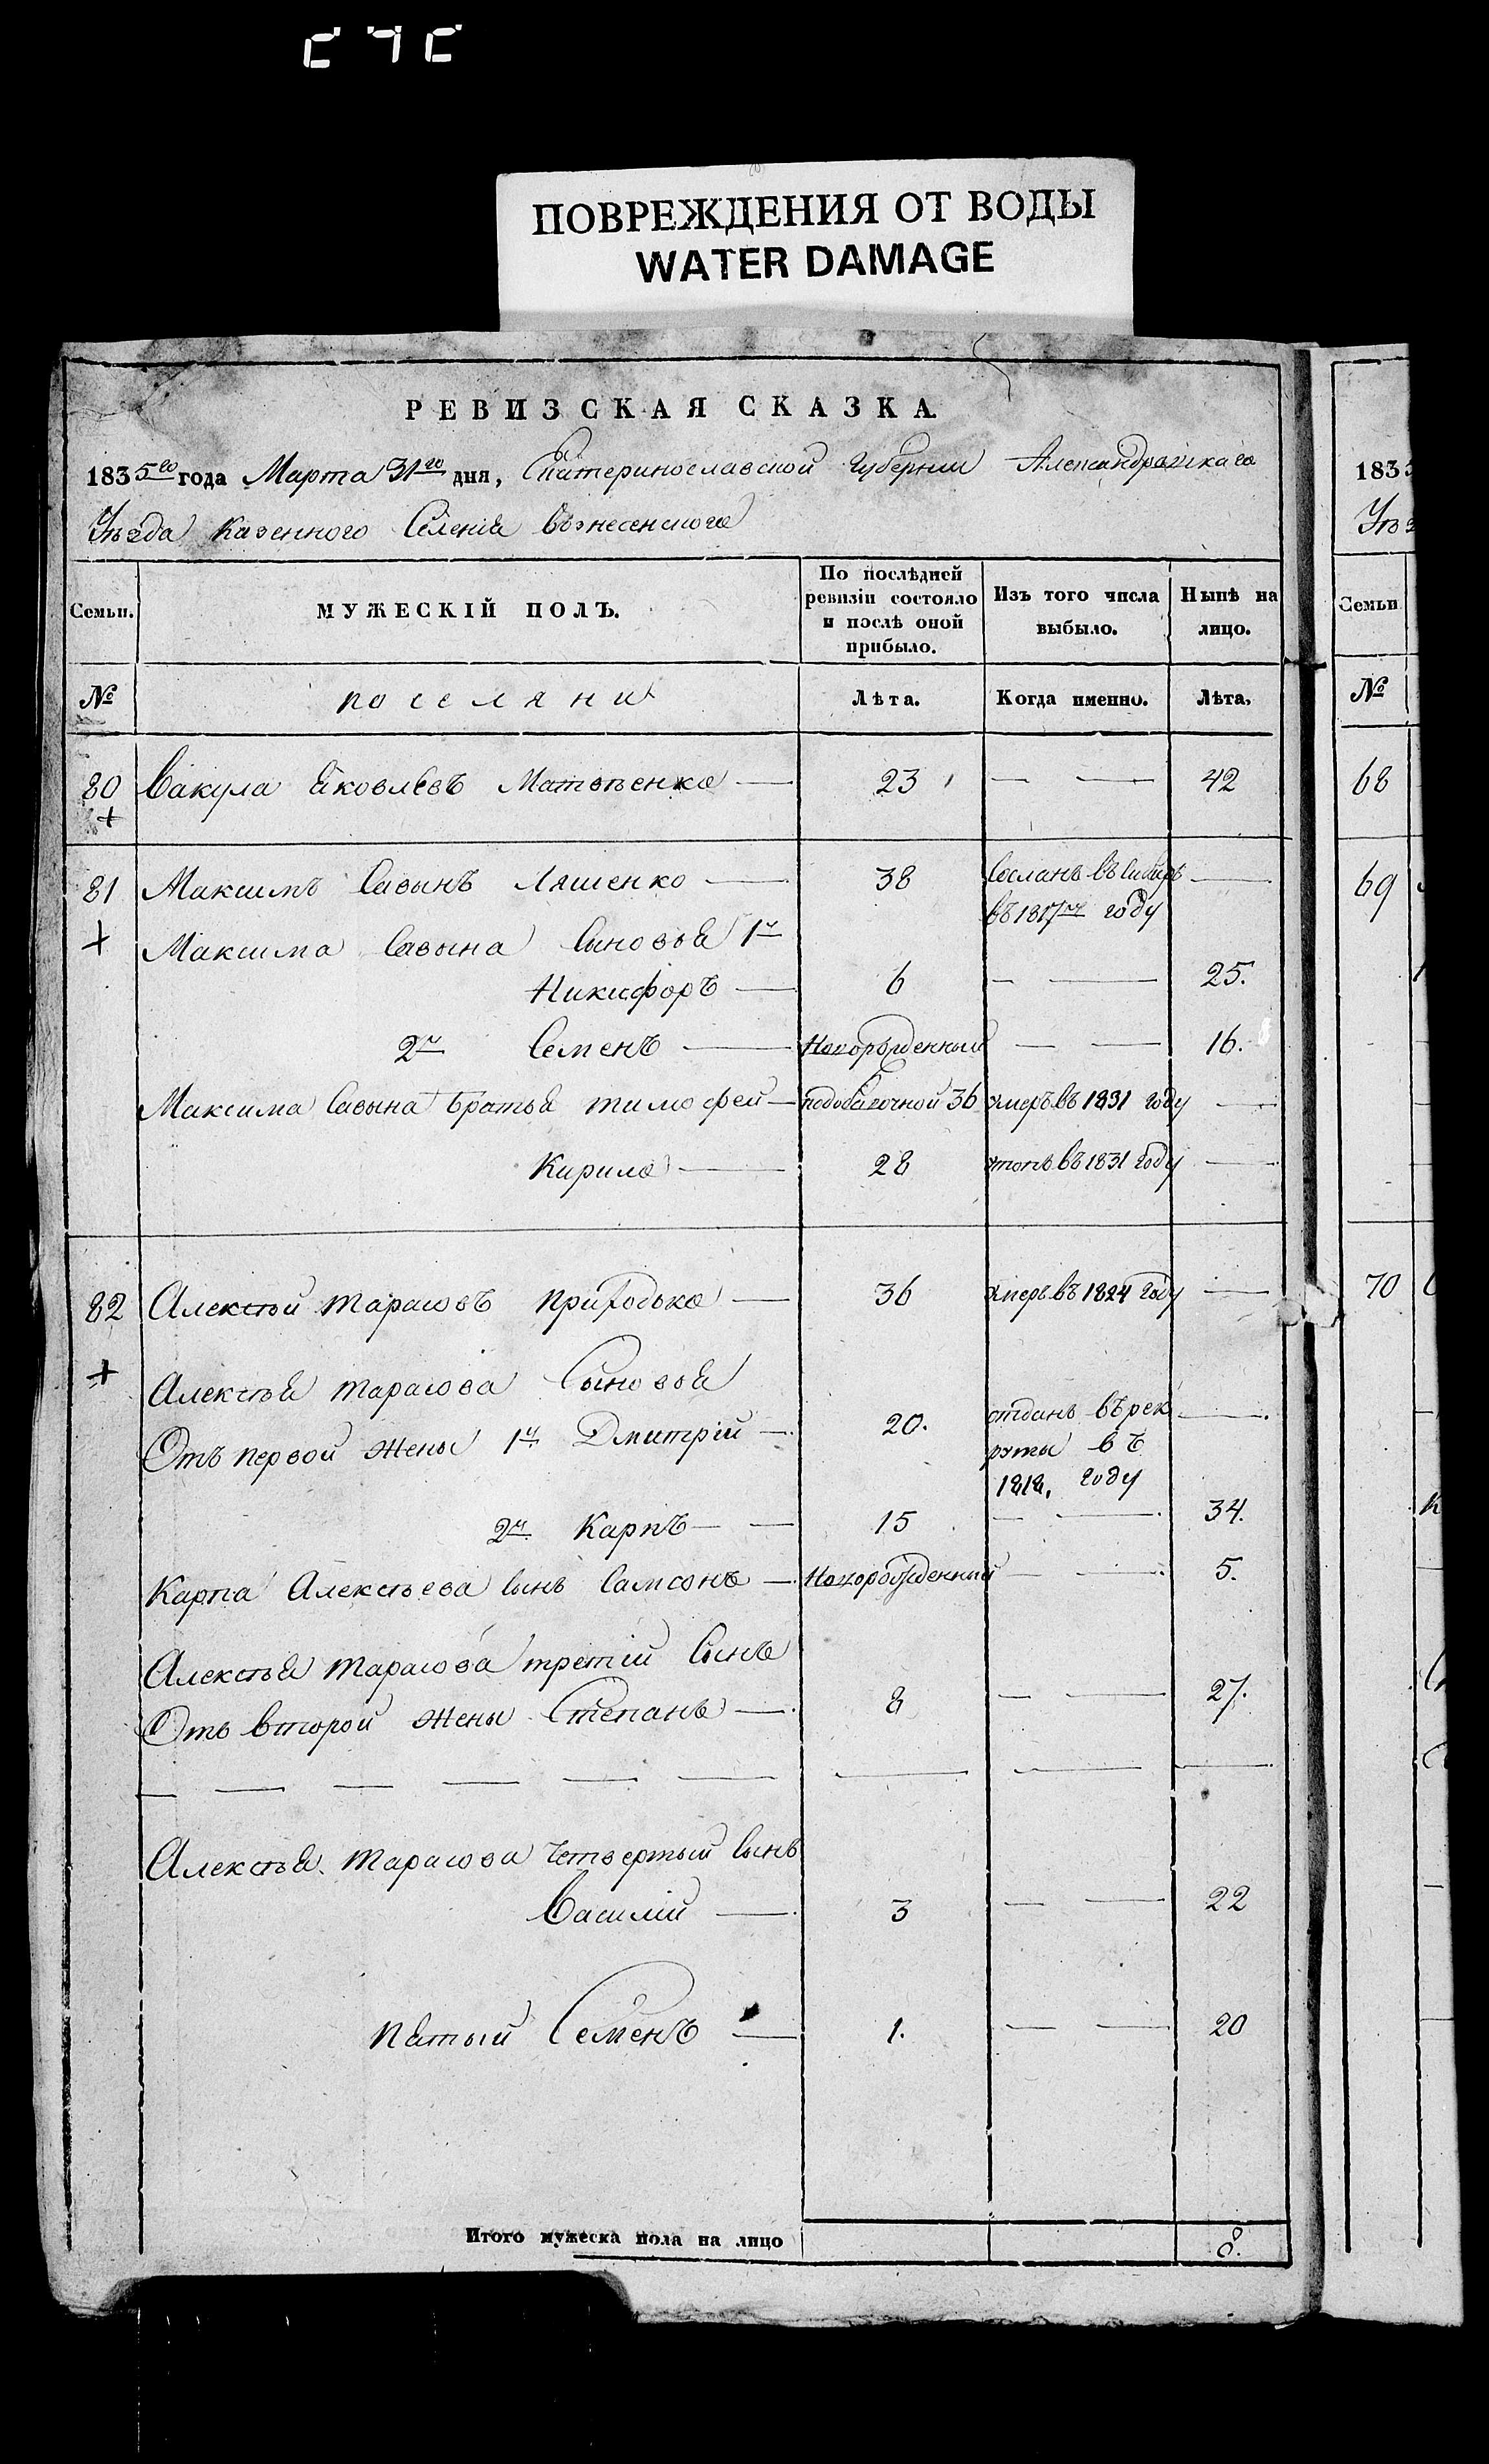 ПОВРЕЖДЕНИЯ ОТ ВОДЫ
WATER DAMAGE
РЕВИЗСКАЯ СКАЗКА
1835го года Марта 31го дня, Екатеринославской Губернии Александровскаго
Уѣзда Казенного Селенія Вознесенского
Семьи.
МУЖЕСКІЙ ПОЛЪ.
По послѣдней ревизіи состояло и послѣ оной прибыло.
Изъ того числа выбыло.
Нынѣ на лицо.
№
поселяни
Лѣта.
Когда именно.
Лѣта.
80 Вакула Яковлевъ Матвѣенко — 23 — — 42
81 Максимъ Савынъ Ляшенко — 38 Сосланъ въ Сибирь —
въ 1817м году
Максима Савына Сыновья 1й
Никифоръ — 6 — — 25.
2й Семенъ — Новорожденный — — 16.
Максима Савына братья тимофей — 36 умеръ въ 1831 году —
Кирило — 28 утопъ въ 1831 году —
82 Алексѣй тарасовъ приходько — 36 умеръ въ 1824 году —
Алексѣя тарасова Сыновья
Отъ первой жены 1й Дмитрій — 20. отданъ въ рек —
руты въ
1818, году
2й Карпъ — — 15 — — 34.
Карпа Алексѣева Сынъ Самсонъ — Новорожденный — — 5.
Алексѣя тарасова третій Сынъ
Отъ второй жены Степанъ — 8 — — 27.
Алексѣя тарасова четвертый Сынъ
Василій — 3 — — 22
пятый Семенъ — 1. — — 20
Итого мужеска пола на лицо 8.
183
Уѣз
Семьи
№
68
69
70